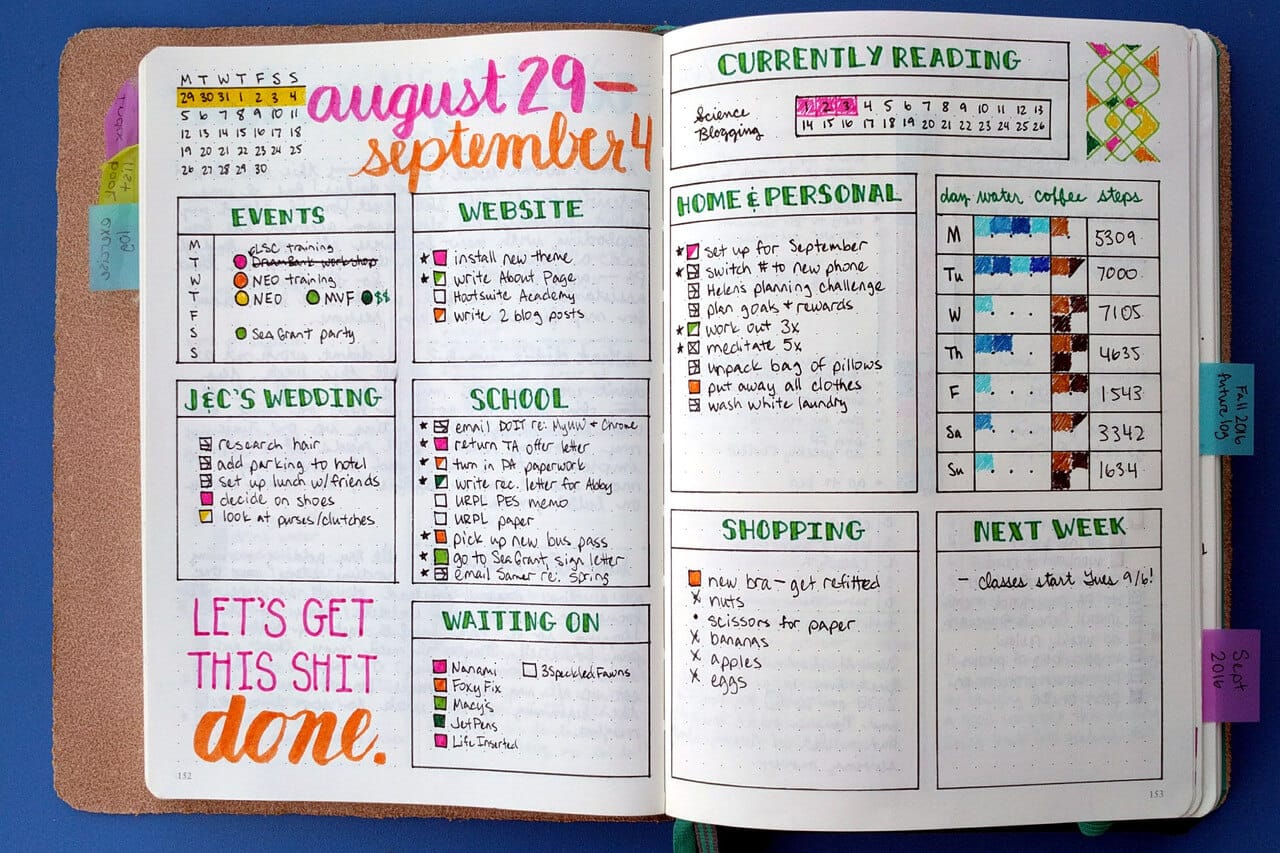 M T W T F S S
29 30 31 1 2 3 4
5 6 7 8 9 10 11
12 13 14 15 16 17 18
19 20 21 22 23 24 25
26 27 28 29 30
august 29 –
september 4
EVENTS
M
T
W
T
F
S
S
ELSC training
DreamBank workshop
NEO training
NEO MVF $$
Sea Grant party
WEBSITE
install new theme
write About Page
Hootsuite Academy
write 2 blog posts
J&C'S WEDDING
research hair
add parking to hotel
set up lunch w/friends
decide on shoes
look at purses/clutches
SCHOOL
email DOIT re: MyUW + Chrome
return TA offer letter
turn in PA paperwork
write rec. letter for Abby
URPL PES memo
URPL paper
pick up new bus pass
go to Sea Grant, sign letter
email Samer re: spring
LET'S GET
THIS SHIT
done.
WAITING ON
Nanami 3 Speckled Fawns
Foxy Fix
Macy's
JetPens
Life Inserted
152
CURRENTLY READING
Science
Blogging
1 2 3 4 5 6 7 8 9 10 11 12 13
14 15 16 17 18 19 20 21 22 23 24 25 26
HOME & PERSONAL
set up for September
switch # to new phone
Helen's planning challenge
plan goals + rewards
work out 3x
meditate 5x
unpack bag of pillows
put away all clothes
wash white laundry
day water coffee steps
M 5309
Tu 7000
W 7105
Th 4635
F 1543
Sa 3342
Su 1634
SHOPPING
new bra – get refitted
nuts
scissors for paper
bananas
apples
eggs
NEXT WEEK
– classes start Tues 9/6!
153
Fall 2016
future log
Sept
2016
exercise
log